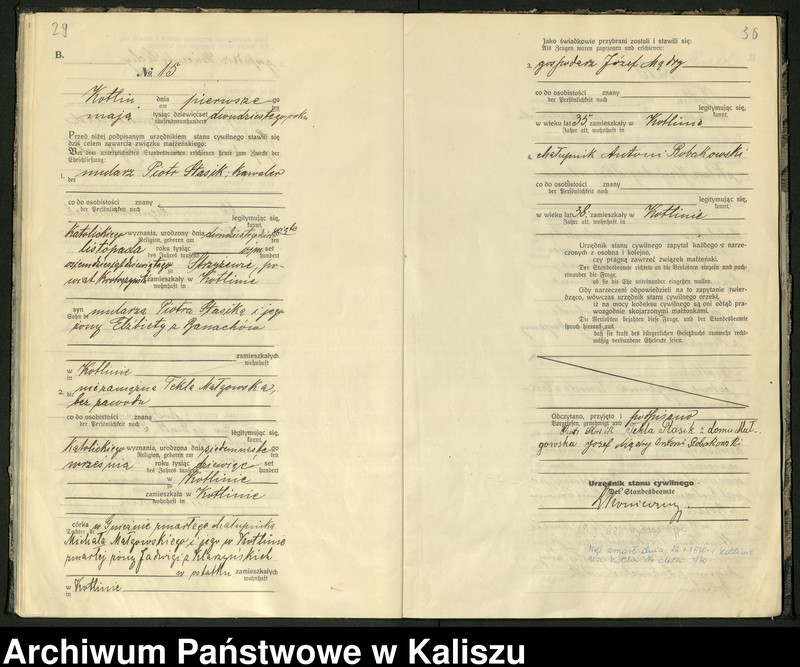 29
B.
No 15
Kotlin dnia pierwszego
am ten
maja tysiąc dziewięćset dwudziestego roku
eintausendneunhundert
Przed niżej podpisanym urzędnikiem stanu cywilnego stawili się
dziś celem zawarcia związku małżeńskiego:
Vor dem unterzeichneten Standesbeamten erschienen heute zum Zwecke der
Eheschließung:
1. mularz Piotr Stasik, kawaler
der
co do osobistości znany
der Persönlichkeit nach
legitymując się,
kannt,
katolickiego wyznania, urodzony dnia dwudziestego
Religion, geboren am ten
listopada roku tysiąc ośm set
des Jahres tausend hundert
ośmdziesiątdziewiątego w Skrzyżewie, po-
zu
wiat Krotoszyn zamieszkały w Kotlinie
wohnhaft in
syn mularza Piotra Stasika i jego
Sohn de
żony Elżbiety z Banachów
zamieszkałych
wohnhaft
w Kotlinie
in
2. niezamężna Tekla Małgowska,
die
bez zawodu
co do osobistości znana
der Persönlichkeit nach
legitymując się,
kannt,
katolickiego wyznania, urodzona dnia siedemnastego
Religion, geboren am ten
września roku tysiąc dziewięć set
des Jahres tausend hundert
w Kotlinie
zu
zamieszkała w Kotlinie
wohnhaft in
córka w zmarłego chałupnika
Tochter de
Michała Małgowskiego, i jego w Kotlinie
zmarłej żony Jadwigi z
w ostatku zamieszkałych
wohnhaft
w Kotlinie
in
30
Jako świadkowie przybrani zostali i stawili się:
Als Zeugen waren zugezogen und erschienen:
3. gospodarz Józef Mądry
co do osobistości znany
der Persönlichkeit nach
legitymując się,
kannt,
w wieku lat 35. zamieszkały w Kotlinie
Jahre alt, wohnhaft in
4. chałupnik Antoni Robakowski
co do osobistości znany
der Persönlichkeit nach
legitymując się,
kannt,
w wieku lat 38. zamieszkały w Kotlinie
Jahre alt, wohnhaft in
Urzędnik stanu cywilnego zapytał każdego z narze-
czonych z osobna i kolejno,
czy pragną zawrzeć związek małżeński.
Der Standesbeamte richtete an die Verlobten einzeln und nach-
einander die Frage,
ob sie die Ehe miteinander eingehen wollen.
Gdy narzeczeni odpowiedzieli na to zapytanie twier-
dząco, wówczas urzędnik stanu cywilnego orzekł,
iż na mocy kodeksu cywilnego są oni odtąd pra-
wozgodnie skojarzonymi małżonkami.
Die Verlobten bejahten diese Frage, und der Standesbeamte
sprach hierauf aus,
daß sie kraft des bürgerlichen Gesetzbuchs nunmehr recht-
mäßig verbundene Eheleute seien.
Odczytano, przyjęto i podpisano
Vorgelesen, genehmigt und
Piotr Stasik Tekla Stasik z domu Mał-
gowska Józef Mądry Antoni Robakowski
Urzędnik stanu cywilnego
Der Standesbeamte
Mąż zmarł dnia
Archiwum Państwowe w Kaliszu